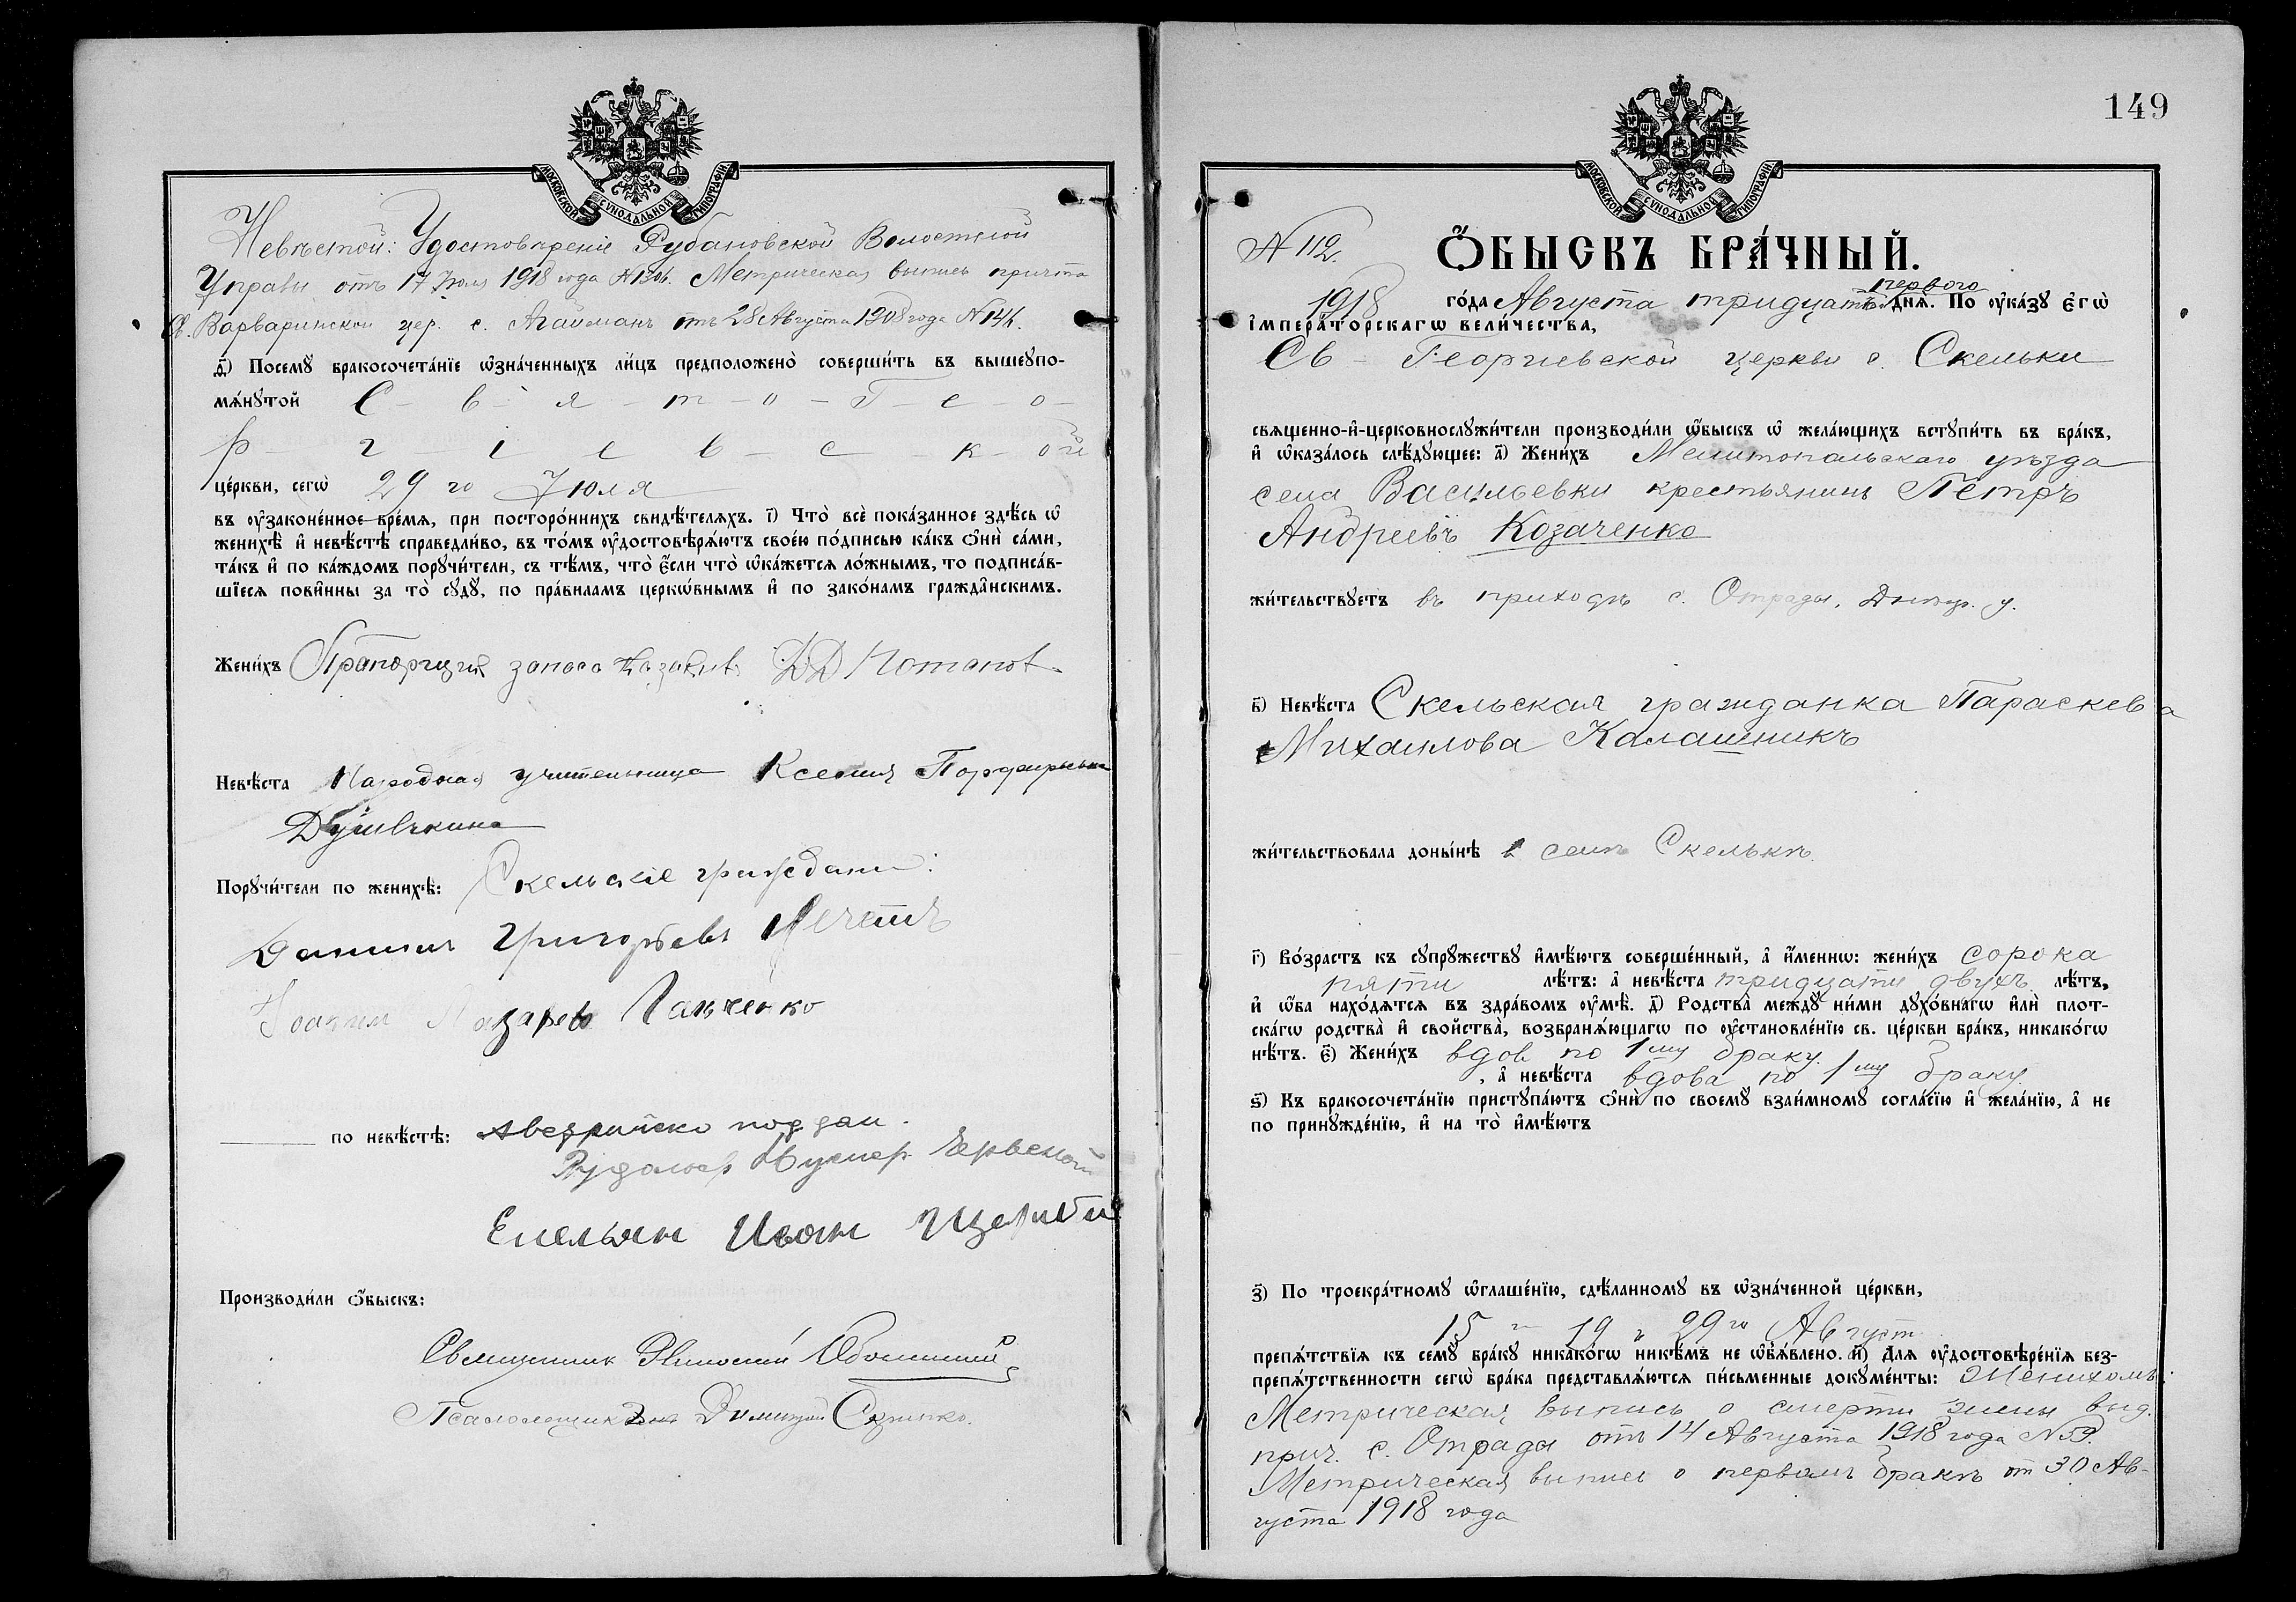 МОСКОВСКОЙ СѴНОДАЛЬНОЙ ТИПОГРАФІИ.
Невѣстой: Удостовѣреніе Рубановской Волостной
Управы отъ 17 Іюля 1918 года № 1306. Метрическая выпись причта
Св. Варваринской цер. с. Агайманъ отъ 28 Августа 1908 года № 146.
д҃) Посемꙋ бракосочета́нїе ѡ҆зна́ченныхъ ли́цъ предположено̀ соверши́ть въ вышеꙋпо-
мѧ́нꙋтой С - в - я - т - о - Г - е - о -
р - г - і - е - в - с - к - ой
це́ркви, сегѡ̀ 29 го Іюля
въ ᲂу҆зако́ненное вре́мѧ, при посторо́ннихъ свидѣ́телѧхъ. і҃) Что̀ всѐ пока́занное здѣ́сь ѡ҆
женихѣ̀ и҆ невѣ́стѣ справедли́во, въ то́мъ ᲂу҆достовѣрѧ́ютъ свое́ю по́дписью ка́къ ѻ҆нѝ са́ми,
та́къ и҆ по ка́ждомъ порꙋчи́тели, съ тѣ́мъ, что̀ є҆́сли что̀ ѡ҆ка́жетсѧ ло́жнымъ, то подписа́в-
шїесѧ пови́нны за то̀ сꙋдꙋ̀, по пра́виламъ церко́внымъ и҆ по зако́намъ гражда̑нскимъ.
Жени́хъ Прапорщик запаса
Невѣ́ста Народная учительница Ксенія Порфирьевна
Порꙋчи́тели по женихѣ̀: Скельскіе граждани:
Даниил Григорьевъ
Иоаким Назарев Ганченко
по невѣ́стѣ: поддан.
Рудольф
Емельян Иван
Производи́ли ѻ҆́быскъ:
Священник
Псаломщик
149
МОСКОВСКОЙ СѴНОДАЛЬНОЙ ТИПОГРАФІИ.
№ 112.
Ѻ҆́БЫСКЪ БРА́ЧНЫЙ.
первого
1918 го́да Августа тридцать днѧ̀. По ᲂу҆ка́зꙋ є҆гѡ̀
і҆мпера́торскагѡ вели́чества,
Св - Георгиевской церкви с. Скельки
свѧщенно-и҆-церковнослꙋжи́тели производи́ли ѻ҆́быскъ ѡ҆ жела́ющихъ встꙋпи́ть въ бра́къ,
и҆ ѡ҆каза́лось слѣ́дꙋющее: а҃) Жени́хъ Мелитопольскаго уѣзда
села Васильевки крестьянинъ Петръ
Андреевъ Козаченко
жи́тельствꙋетъ въ приходѣ с. Отрады, Днѣпр. у.
в҃) Невѣ́ста Скельская гражданка Параскева
Михаилова Калашникъ
жи́тельствовала доны́нѣ в селѣ Скелькѣ.
г҃) Во́зрастъ къ сꙋпрꙋ́жествꙋ и҆мѣ́ютъ соверше́нный, а҆ и҆́меннѡ: жени́хъ сорока
пяти лѣ́тъ: а҆ невѣ́ста тридцати двухъ лѣ́тъ,
и҆ ѻ҆́ба нахо́дѧтсѧ въ здра́вомъ ᲂу҆мѣ̀. д҃) Родства̀ междꙋ̀ ни́ми дꙋхо́внагѡ и҆лѝ плот-
ска́гѡ родства̀ и҆ сво́йства̀, возбранѧ́ющагѡ по ᲂу҆становле́нїю св. це́ркви бра́къ, никако́гѡ
нѣ́тъ. є҃) Жени́хъ вдов по 1му браку.
, а҆ невѣ́ста вдова по 1му браку.
ѕ҃) Къ бракосочета́нїю пристꙋпа́ютъ ѻ҆нѝ по своемꙋ̀ взаи́мномꙋ согла́сїю и҆ жела́нїю, а҆ не
по принꙋжде́нїю, и҆ на то̀ и҆мѣ́ютъ
з҃) По троекра́тномꙋ ѡ҆глаше́нїю, сдѣ́ланномꙋ въ ѡ҆зна́ченной це́ркви,
15 19 и 29 го Август
препѧ́тствїѧ къ семꙋ̀ бра́кꙋ никако́гѡ никѣ́мъ не ѡ҆б̾ѧ́влено. и҃) Длѧ ᲂу҆достовѣре́нїѧ без-
препѧ́тственности сегѡ̀ бра́ка представлѧ́ютсѧ пи́сьменные докꙋме́нты: Женихомъ:
Метрическая выпись о смерти жены выд.
прич. с. Отрада отъ 14 Августа 1918 года № 59.
Метрическая выпись о первомъ бракѣ от 30 Ав-
густа 1918 года